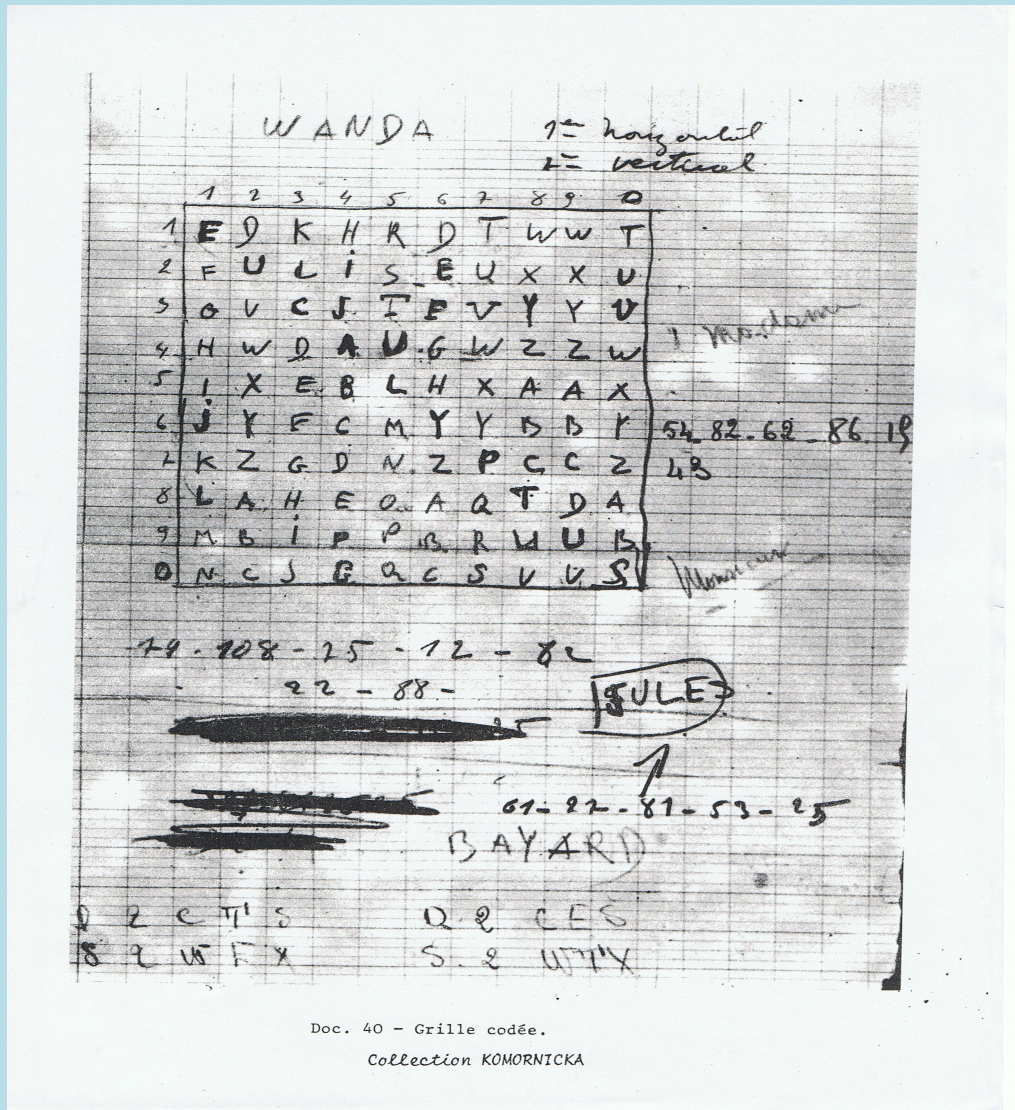 WANDA
1= horizontal
2= vertical
1 2 3 4 5 6 7 8 9 0
1 E D K H R D T W W T
2 F U L i S E U X X U
3 O V C J T E V Y Y V
4 H W D A U G W Z Z W
5 I X E B L H X A A X
6 J Y F C M Y Y B B Y
7 K Z G D N Z P C C Z
8 L A H E O A Q T D A
9 M B i F P B R U U B
0 N C J G Q C S V V S
Madame
54-82-62-86-19
43
Monsieur
79-108-25-12-82
22-88-
JULES
61-22-81-53-25
BAYARD
D 2 C T'S Q 2 CES
S 2 W E X S-2 WT'X
Doc. 40 - Grille codée.
Collection KOMORNICKA